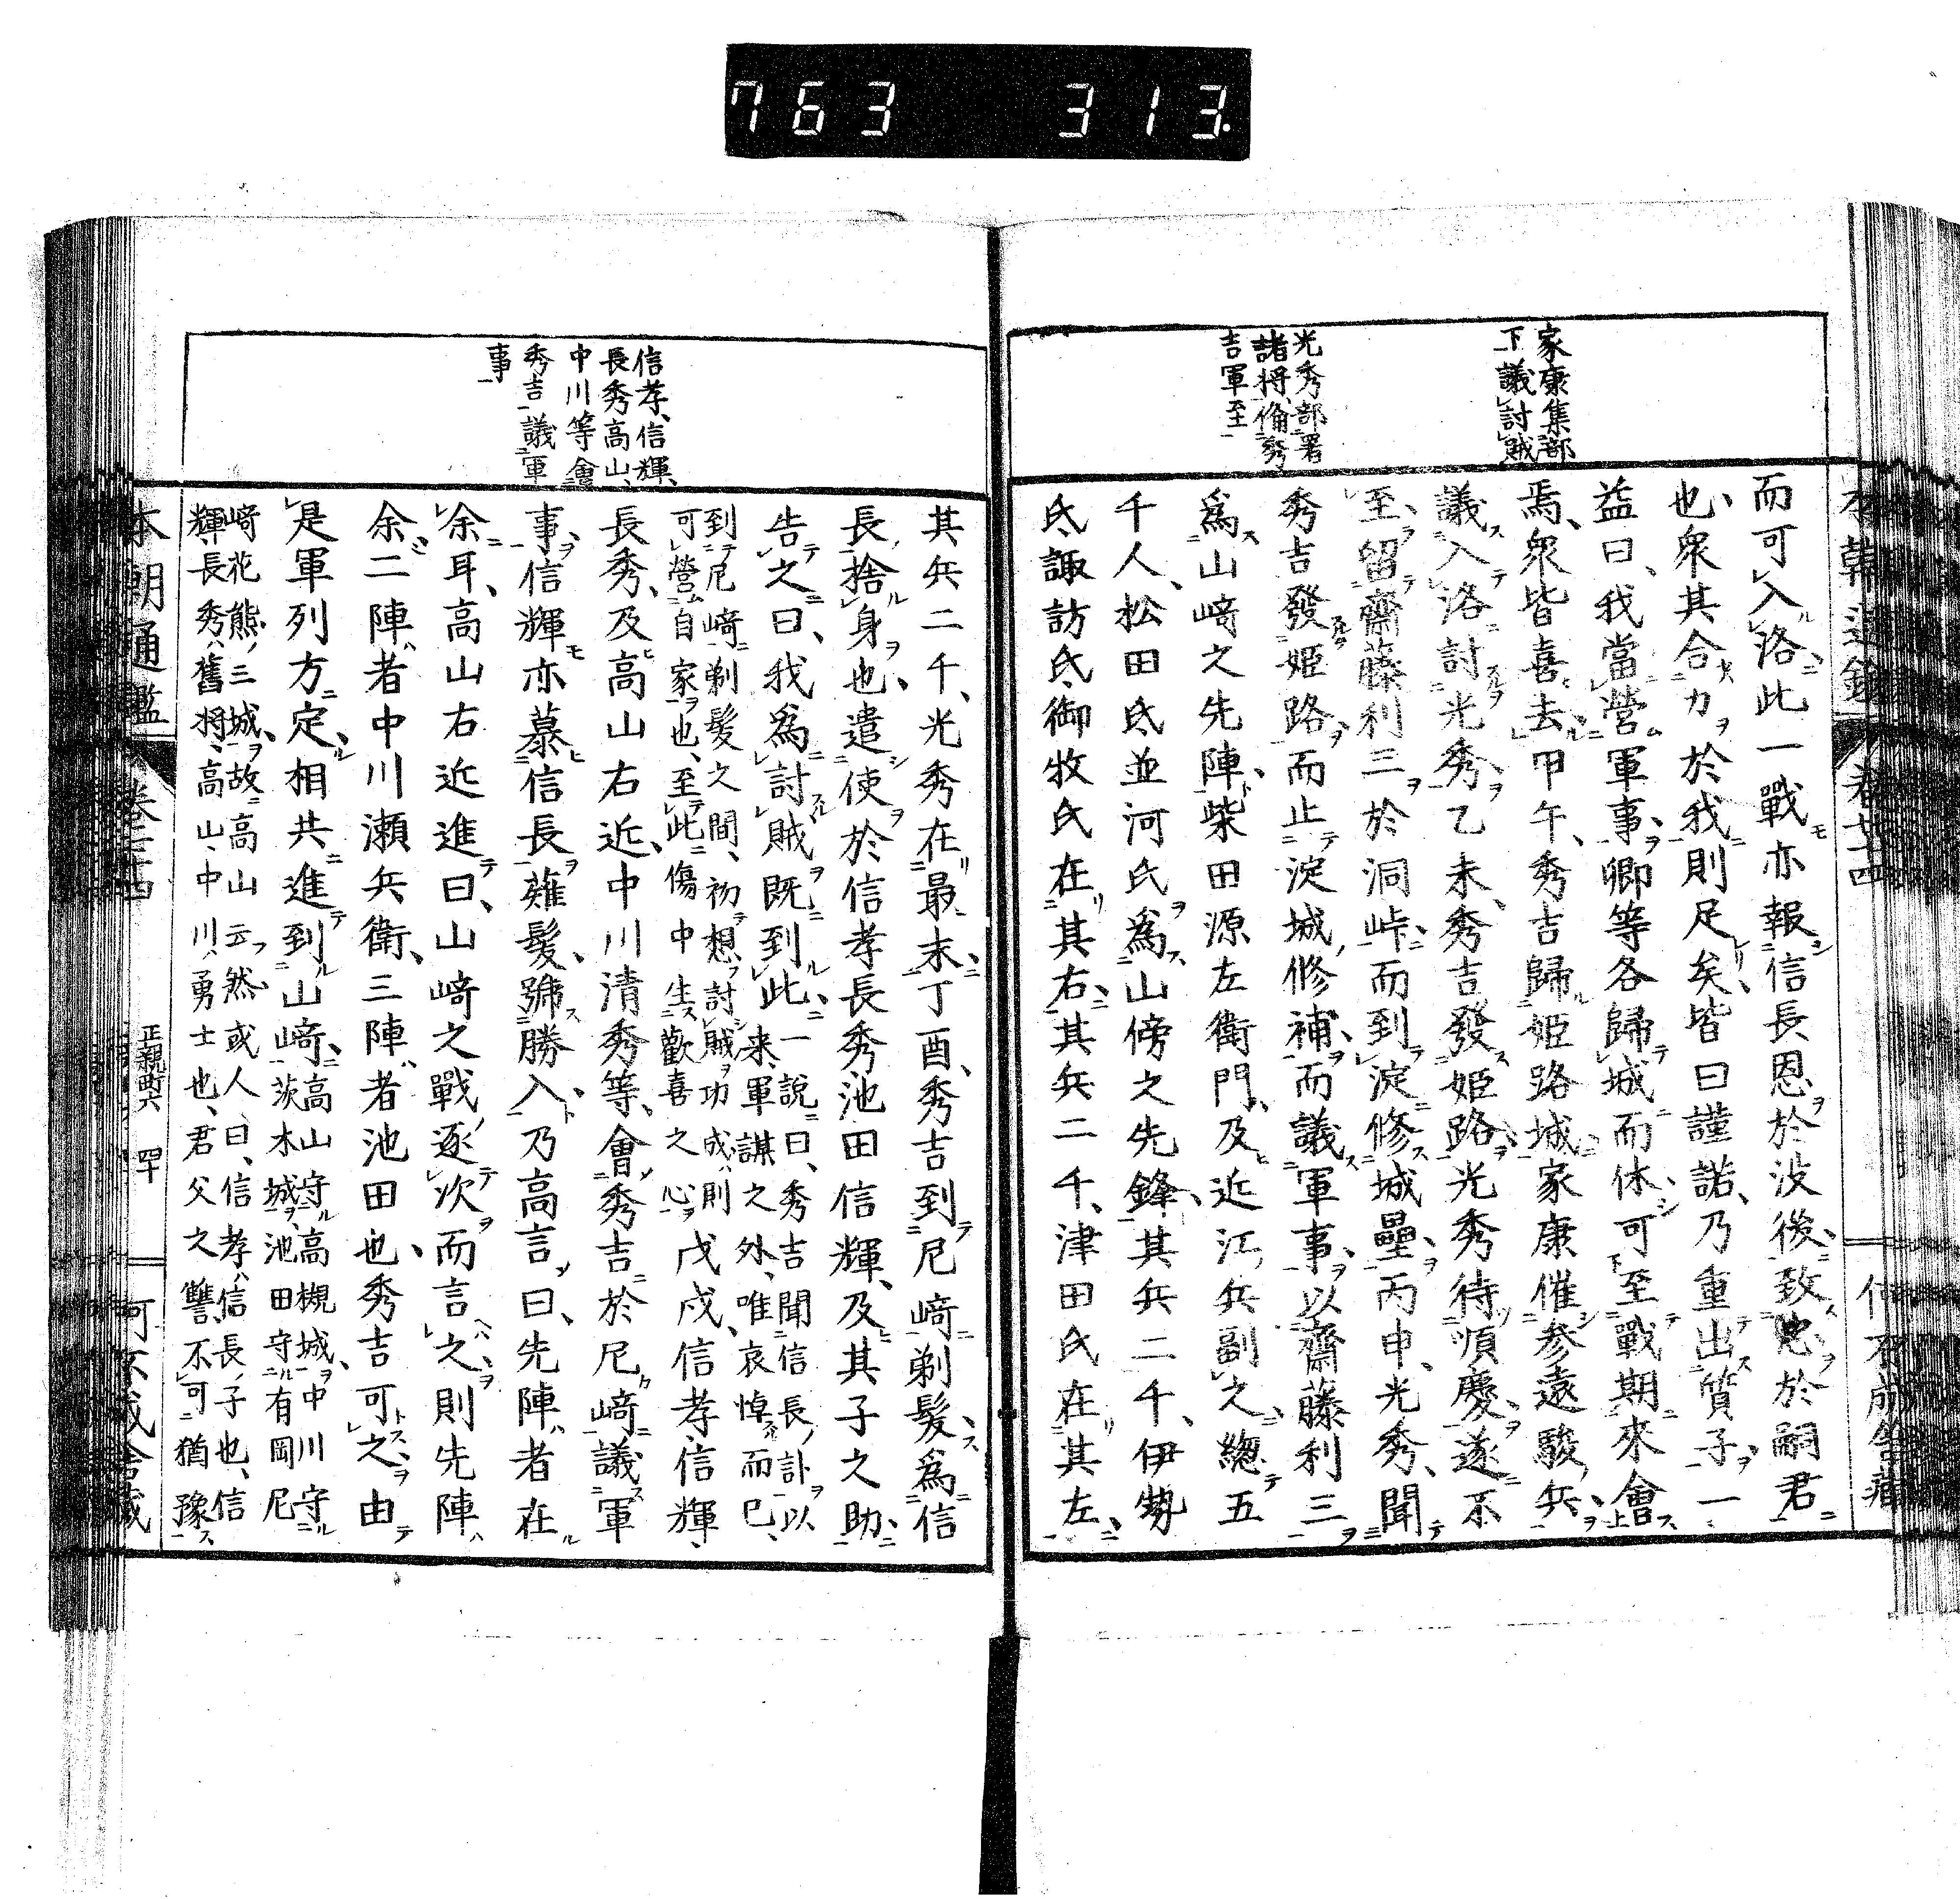 763 313
家康集部
下議討賊
光秀部署
諸将備秀
吉軍至
而可入洛此一戰亦報信長恩於没後致忠於嗣君
也衆其合力於我則足矣皆曰謹諾乃重出質子一
益曰我當營軍事卿等各歸城而休可至戰期來會
焉衆皆喜去甲午秀吉歸姫路城家康催参遠駿兵
議入洛討光秀乙未秀吉發姫路光秀待順慶遂不
至留齋藤利三於洞峠而到淀修城壘丙申光秀聞
秀吉發姫路而止淀城修補而議軍事以齋藤利三
爲山﨑之先陣柴田源左衛門及近江兵副之總五
千人松田氏並河氏爲山傍之先鋒其兵二千伊勢
氏諏訪氏御牧氏在其右其兵二千津田氏在其左
信孝信輝
長秀高山
中川等會
秀吉議軍
事
其兵二千光秀在最末丁酉秀吉到尼﨑剃髮爲信
長捨身也遣使於信孝長秀池田信輝及其子之助
告之曰我爲討賊既到此一説曰秀吉聞信長訃以
来軍謀之外唯哀悼而已
到尼﨑剃髮之間初想討賊功成則
可營自家也至此傷中生歡喜之心戊戌信孝信輝
長秀及高山右近中川清秀等會秀吉於尼﨑議軍
事信輝亦慕信長薙髮號勝入乃高言曰先陣者在
余耳高山右近進曰山﨑之戰逐次而言之則先陣
余二陣者中川瀬兵衛三陣者池田也秀吉可之由
是軍列方定相共進到山﨑高山守高槻城中川守
茨木城池田守有岡尼
﨑花熊三城故高山云然或人曰信孝信長子也信
輝長秀舊将高山中川勇士也君父之讐不可猶豫
本朝通鑑
正親町六
四十